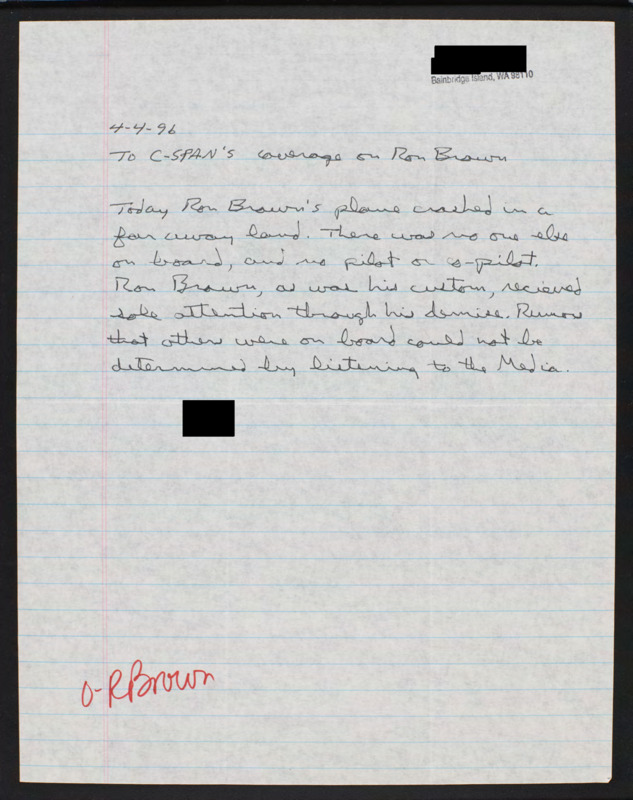 Bainbridge Island, WA 98110
4-4-96
To C-SPAN's coverage on Ron Brown
Today Ron Brown's plane crashed in a
far away land. There was no one else
on board, and no pilot or co-pilot.
Ron Brown, as was his custom, recieved
sole attention through his demise. Rumors
that others were on board could not be
determined by listening to the Media.
O-RBrown